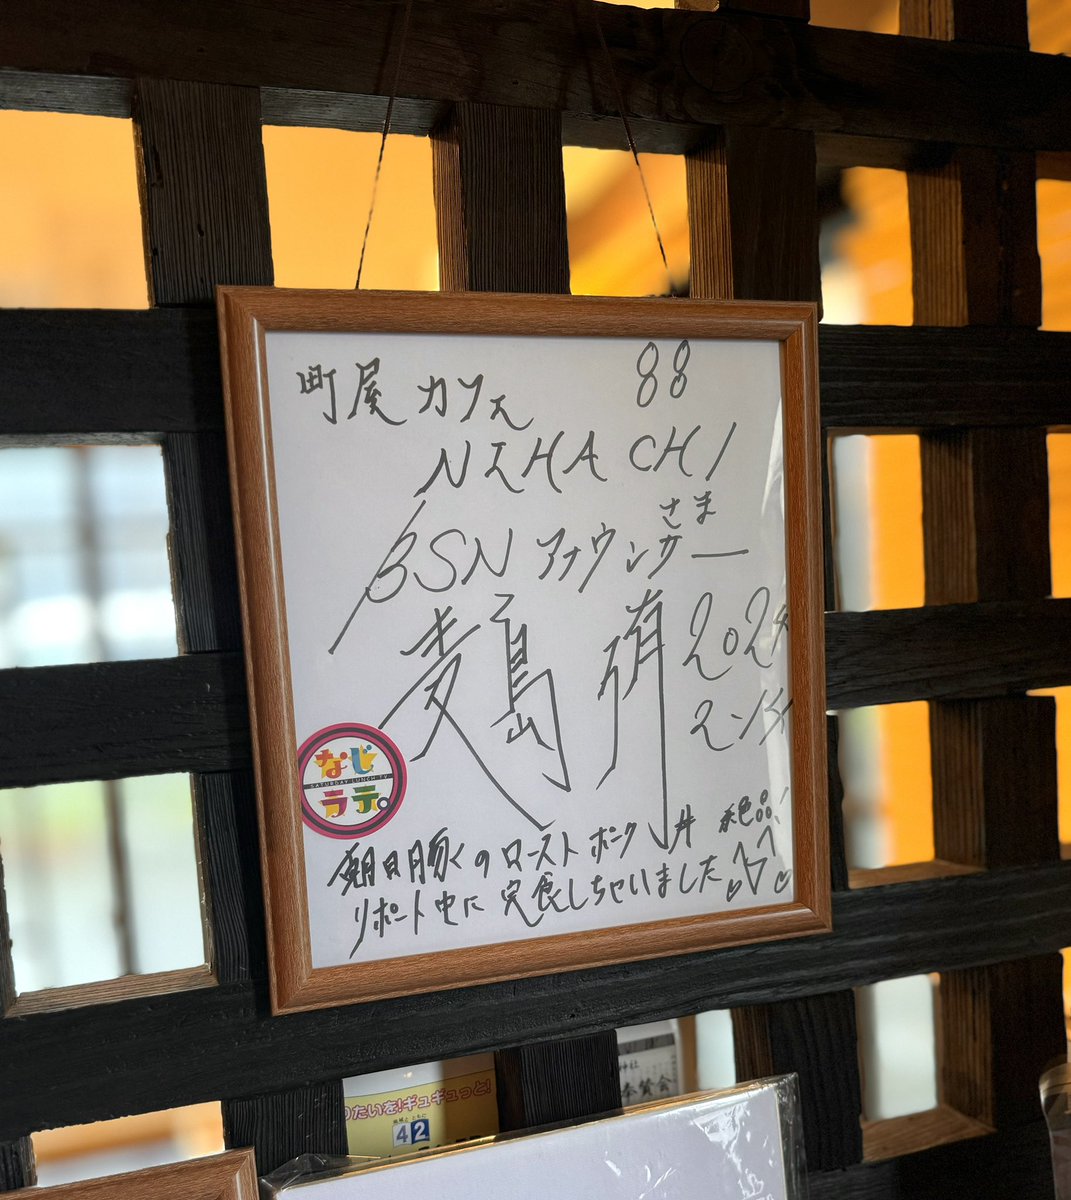 町屋カフェ 88
NIHACHI
さま
BSN アナウンサー
麦島 侑
なじ
SATURDAY LUNCH TV
ラテ。
朝日豚のローストポーク丼 絶品!
リポート中に完食しちゃいました
りたいを!ギュギュっと!
42
神社
奉賛会